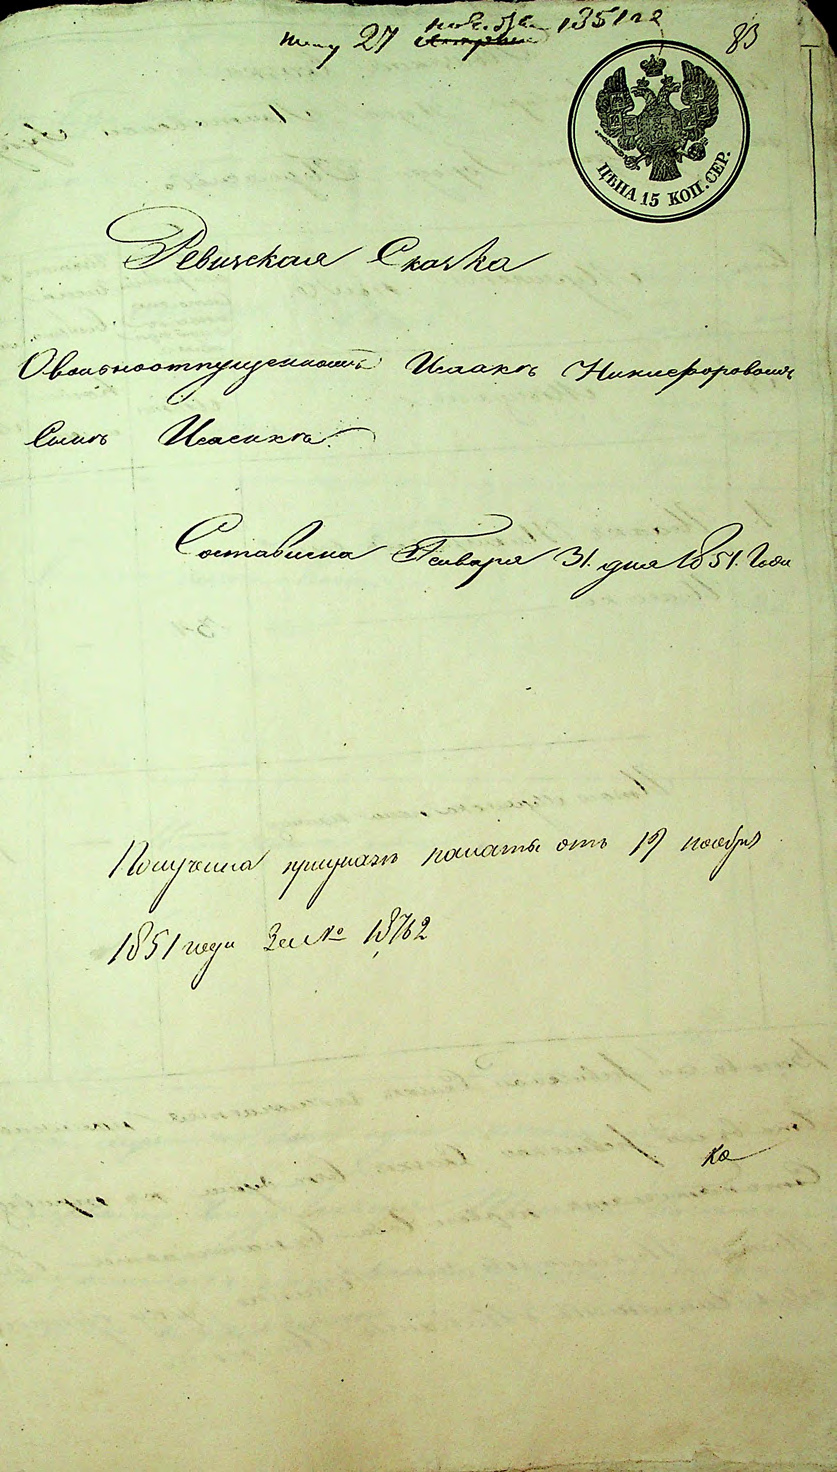 27 ноября 1851 го
83
ЦѢНА 15 КОП. СЕР.
Ревижская Скаска
Овольноотпущенномъ Исаакъ Никифоровомъ
Сынъ Исаакъ
Составлена Генваря 31. дня 1851. Года
Получена при указъ палаты отъ 19 ноября
1851 года За № 18762
Ка